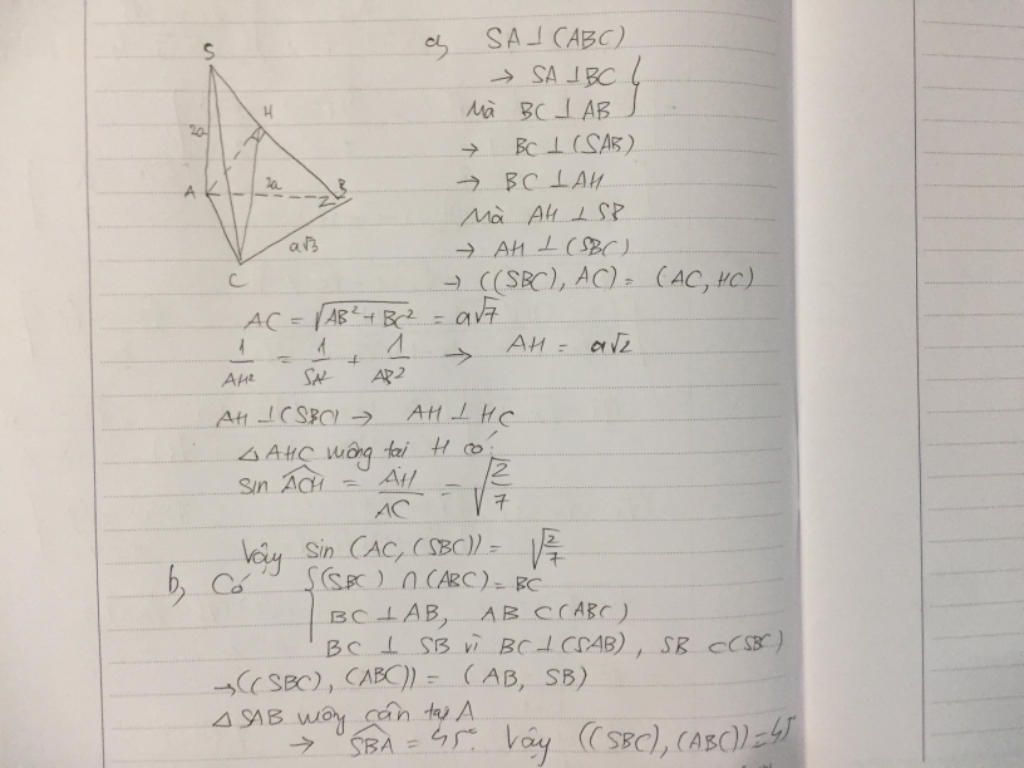 S
H
2a
A
2a
B
a√3
C
a, SA ⊥ (ABC)
→ SA ⊥ BC
Mà BC ⊥ AB
→ BC ⊥ (SAB)
→ BC ⊥ AH
Mà AH ⊥ SB
→ AH ⊥ (SBC)
→ ((SBC), AC) = (AC, HC)
AC = √(AB² + BC²) = a√7
1/AH² = 1/SA² + 1/AB² → AH = a√2
AH ⊥ (SBC) → AH ⊥ HC
△AHC vuông tại H có:
sin ACH = AH/AC = √(2/7)
Vậy sin (AC, (SBC)) = √(2/7)
b, Có { (SBC) ∩ (ABC) = BC
BC ⊥ AB, AB ⊂ (ABC)
BC ⊥ SB vì BC ⊥ (SAB), SB ⊂ (SBC)
→ ((SBC), (ABC)) = (AB, SB)
△SAB vuông cân tại A
→ SBA = 45°. Vậy ((SBC), (ABC)) = 45